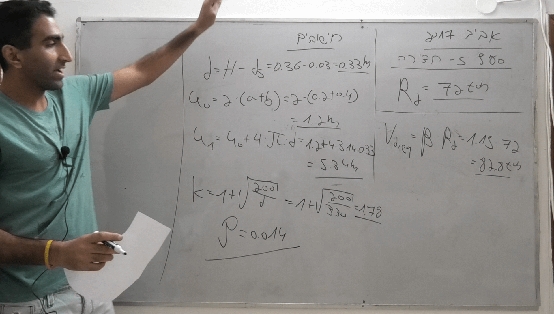 חישובים
d = H - ds = 0.36 - 0.03 = 0.33m
u₀ = 2·(a+b) = 2·(0.2+0.4)
= 1.2m
u₁ = u₀ + 4·π·d = 1.2+4·3.14·0.33
= 5.34m
k = 1+√200/d = 1+√200/330 = 1.78
ρ = 0.014
R_d = 72 ton
V_d,eq = β R_d = 1.15·72
= 82.8 ton